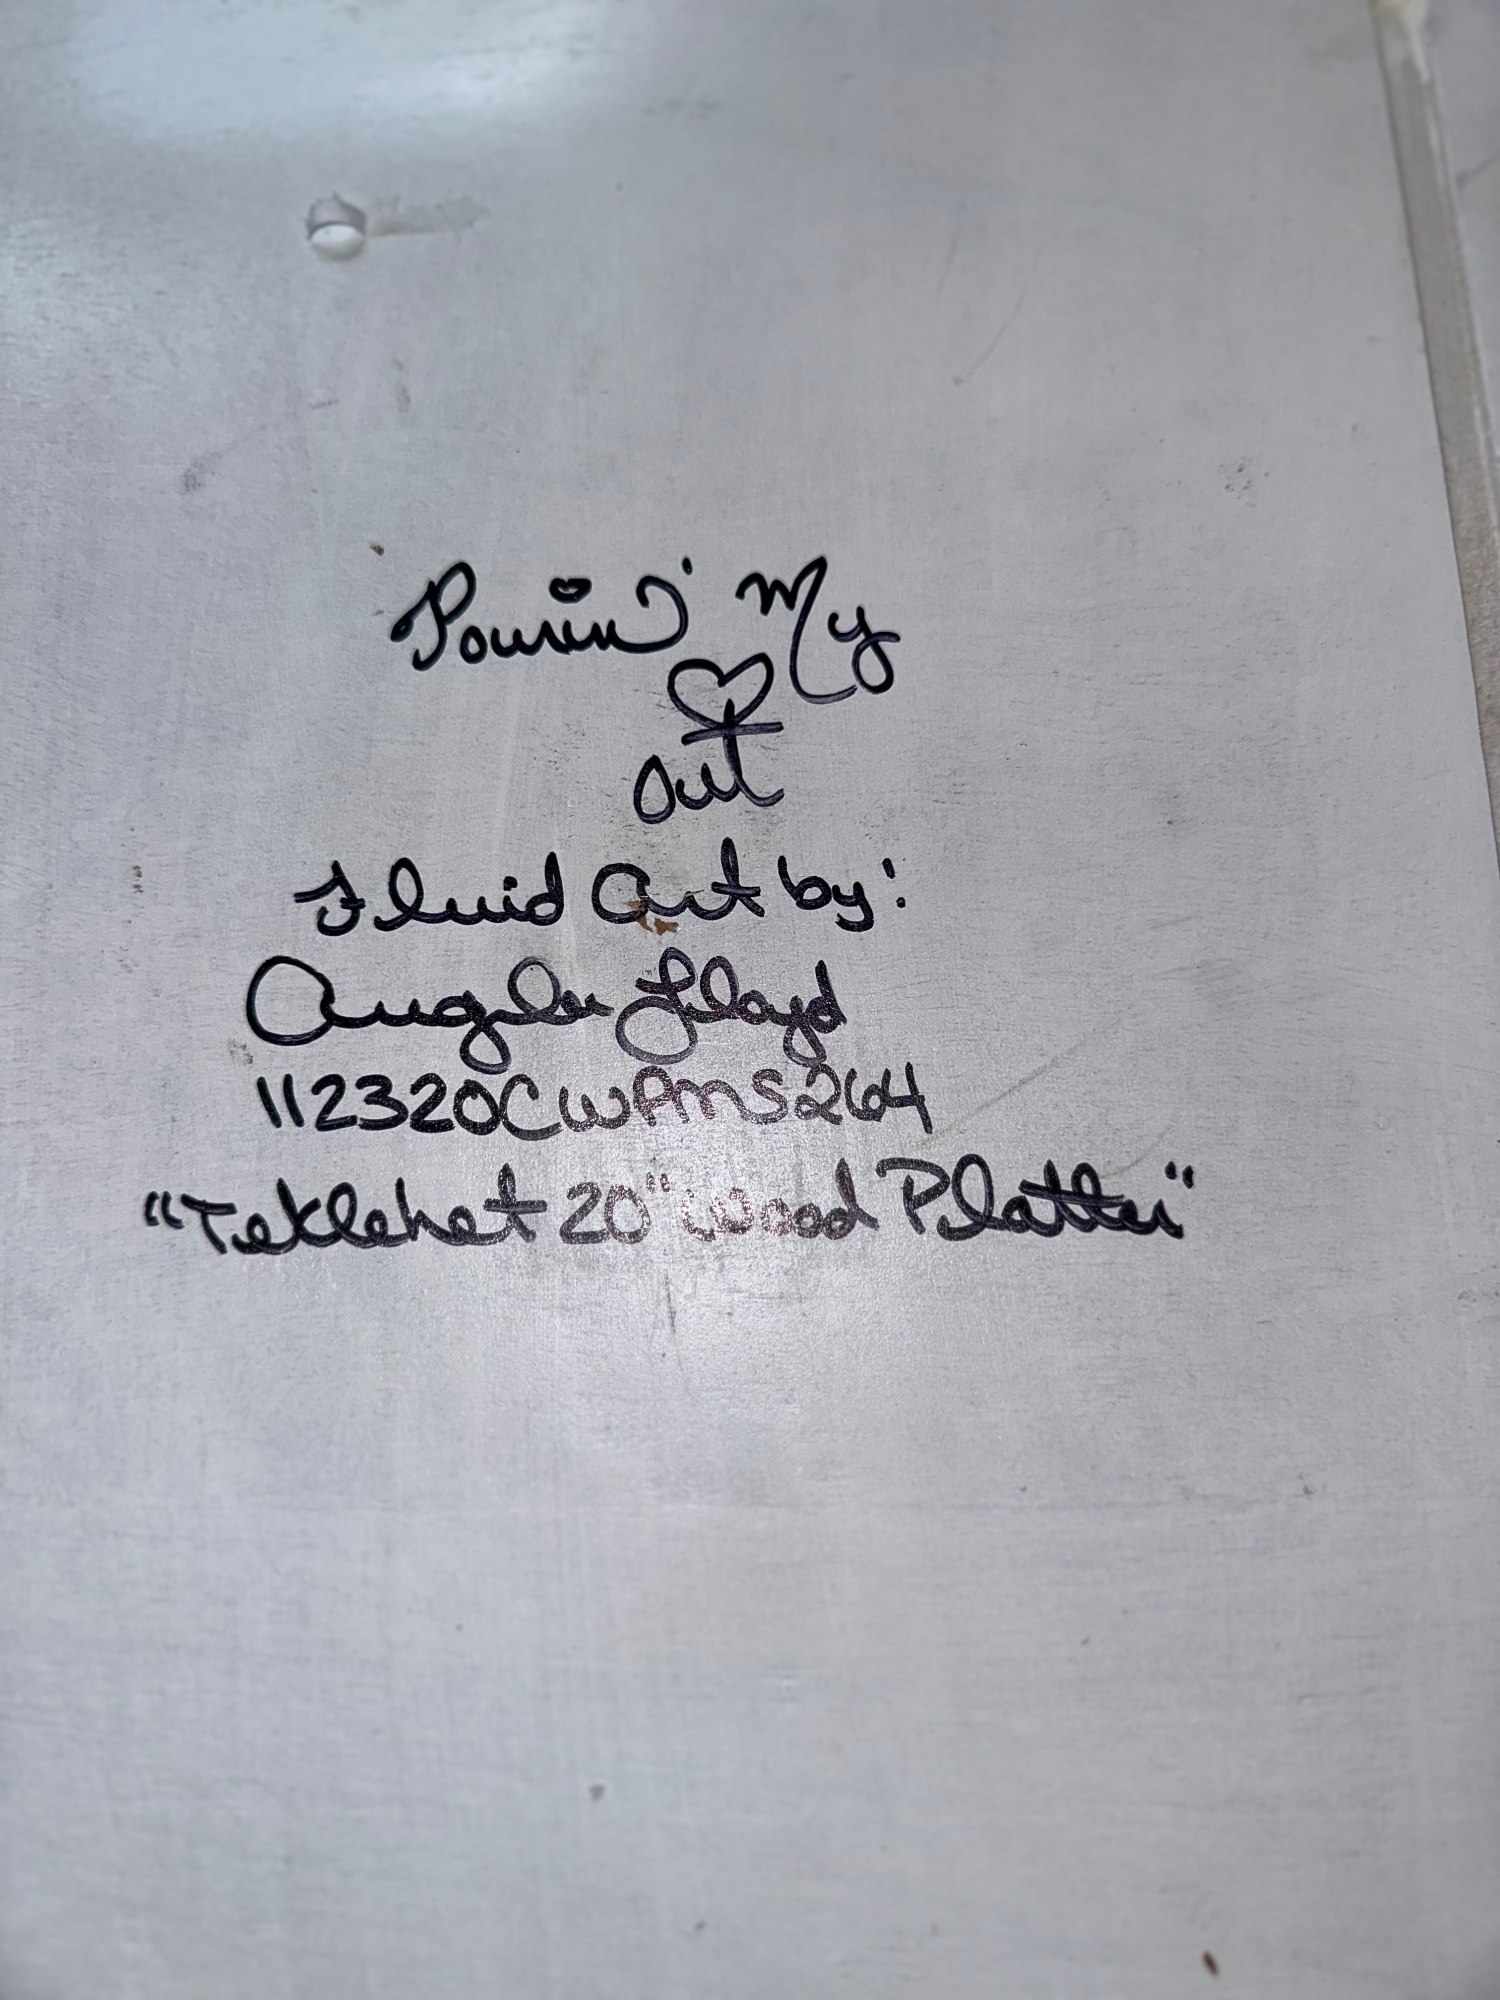 Pourin' My
♡
Out
Fluid Art by:
Angela Lloyd
112320CWPMS264
"Teklehet 20" Wood Platter"